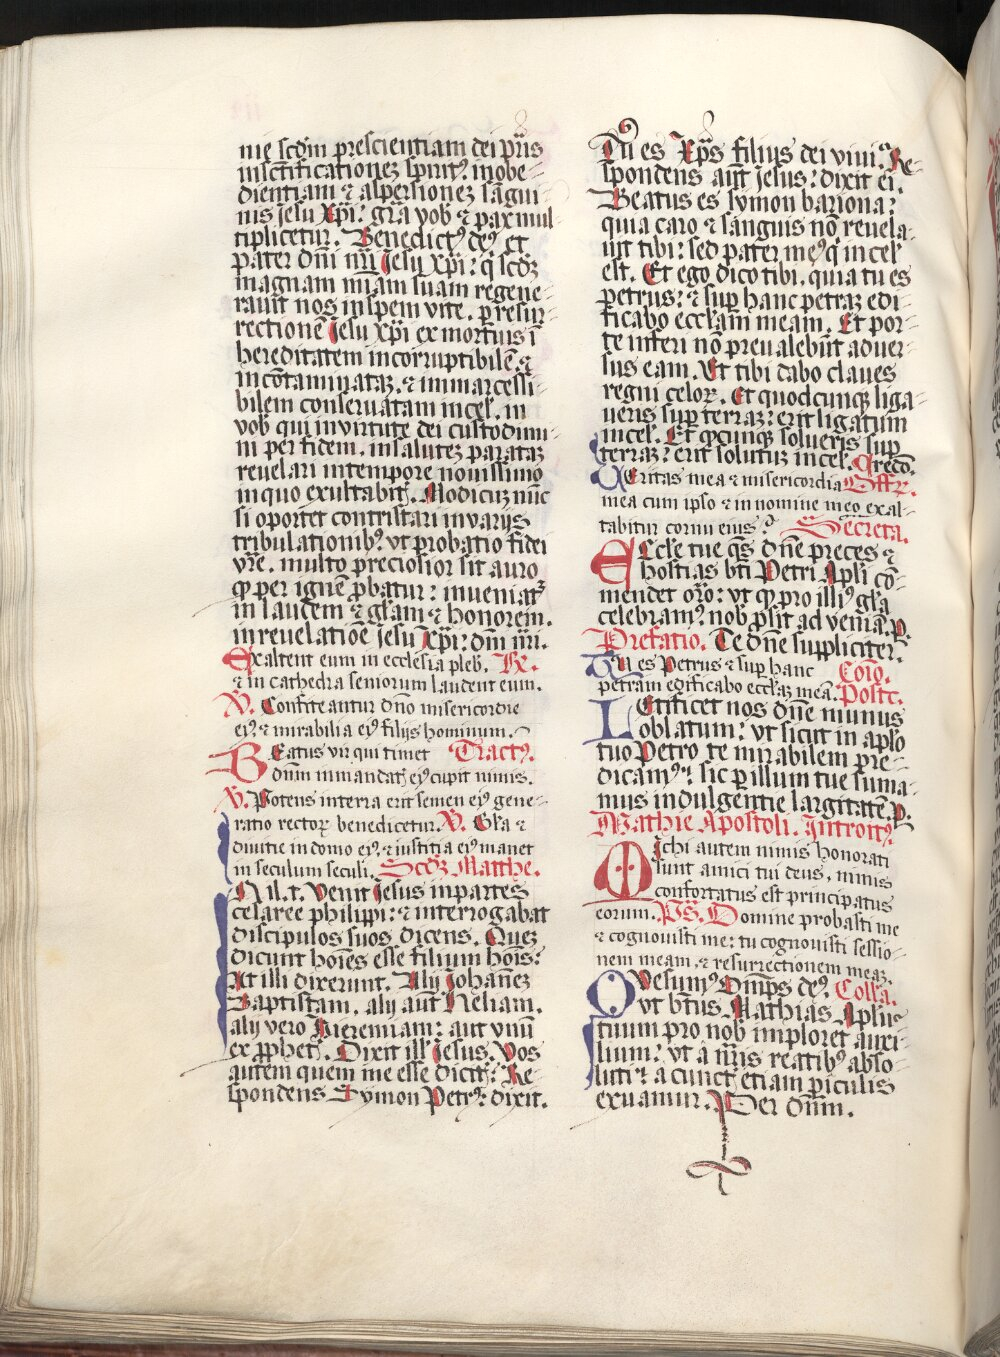 nie scd̄m prescientiam dei pr̄is
insc̄tificationeʒ spirit⁹ in obe-
dientiam ⁊ aspersioneʒ sāgui
nis jesu xp̄i: gr̄a vob̄ ⁊ pax mul
tiplicetur. Benedict⁹ de⁹ et
pater dn̄i nr̄i Jesu xp̄i: q̇ scd̄ʒ
magnam mīam suam regene-
rauit nos in spem vite. ꝑ resur-
rectionē Jesu xp̄i ex mortuis ī
hereditatem incorruptibilē. ⁊
incōtaminataʒ. ⁊ immarcessi-
bilem conseruatam in cel̄. in
vob̄ qui in virtute dei custodimi-
ni per fidem. in saluteʒ parataʒ
reuelari in tempore nouissimo
in quo exultabit̄. Modicuʒ nūc
si oportet contristari in varijs
tribulationib⁹: vt probatio fidei
vr̄e. multo preciosior sit auro
qd̄ per ignē ꝓbatur: inueniat̄
in laudem ⁊ gl̄am ⁊ honorem.
in reuelatiōe Jesu xp̄i: dn̄i nr̄i.
Exaltent eum in ecclesia pleb̄. R̄.
⁊ in cathedra seniorum laudent eum.
V̄. Confiteantur dn̄o misericordie
ei⁹: ⁊ mirabilia ei⁹ filijs hominum.
Beatus vir qui timet Tract⁹.
dn̄um in mandat̄ ei⁹ cupit nimis.
V̄. Potens in terra erit semen ei⁹ gene-
ratio rectoꝝ benedicetur. V̄. Gl̄a ⁊
diuitie in domo ei⁹. ⁊ iustitia ei⁹ manet
in seculum seculi. Scd̄ʒ Matthe.
In il.t. Venit Jesus in partes
cesaree philippi: ⁊ interrogabat
discipulos suos dicens. Queʒ
dicunt hoīes esse filium hoīs:
At illi dixerunt. Alij Johāneʒ
Baptistam. alij aūt Heliam.
alij vero Hieremiam: aut vnū
ex ꝓphet̄. Dixit ill̄ Jesus. Vos
autem quem me esse dicit̄: Re-
spondens Symon Petr⁹: dixit.
Tu es xp̄s filius dei viui. Re-
spondens aūt Jesus: dixit ei.
Beatus es symon bariona:
quia caro ⁊ sanguis nō reuela-
uit tibi: sed pater me⁹ q̇ in cel̄
est. Et ego dico tibi. quia tu es
petrus: ⁊ suꝑ hanc petraʒ edi-
ficabo eccl̄am meam. Et por-
te inferi nō preualebūt aduer-
sus eam. Et tibi dabo claues
regni celoꝝ. Et quodcunqꝫ liga-
ueris suꝑ terraʒ: erit ligatum
in cel̄. Et qd̄cunqꝫ solueris suꝑ
terraʒ: erit solutuʒ in cel̄. Credo.
Veritas mea ⁊ misericordia Offꝝ.
mea cum ipso ⁊ in nomine meo exal-
tabitur cornu eius. Secreta.
Eccl̄e tue q̄s dn̄e preces ⁊
hostias bt̄i Petri Apl̄i cō-
mendet or̄o: vt qd̄ pro illi⁹ gl̄ia
celebram⁹ nob̄ ꝓsit ad veniā. P.
Prefatio. Te dn̄e suppliciter.
Tu es Petrus ⁊ suꝑ hanc Cōio.
petram edificabo eccl̄aʒ meā. Postc.
Letificet nos dn̄e munus
oblatum: vt sicut in apl̄o
tuo Petro te mirabilem pre-
dicam⁹: sic ꝑ illum tue suma-
mus indulgentie largitatē. P.
Mathie Apostoli. Introit⁹.
Michi autem nimis honorati
sunt amici tui deus. nimis
confortatus est principatus
eorum. Ps̄. Domine probasti me
⁊ cognouisti me: tu cognouisti sessio-
nem meam. ⁊ resurrectionem meaʒ.
Quesum⁹ Om̄ps de⁹. Coll̄a.
vt bt̄us Mathias Apl̄us
tuum pro nob̄ imploret auxi-
lium: vt a nr̄is reatib⁹ abso-
luti ⁊ a cunct̄ etiam ꝑiculis
exuamur. Per dn̄m.